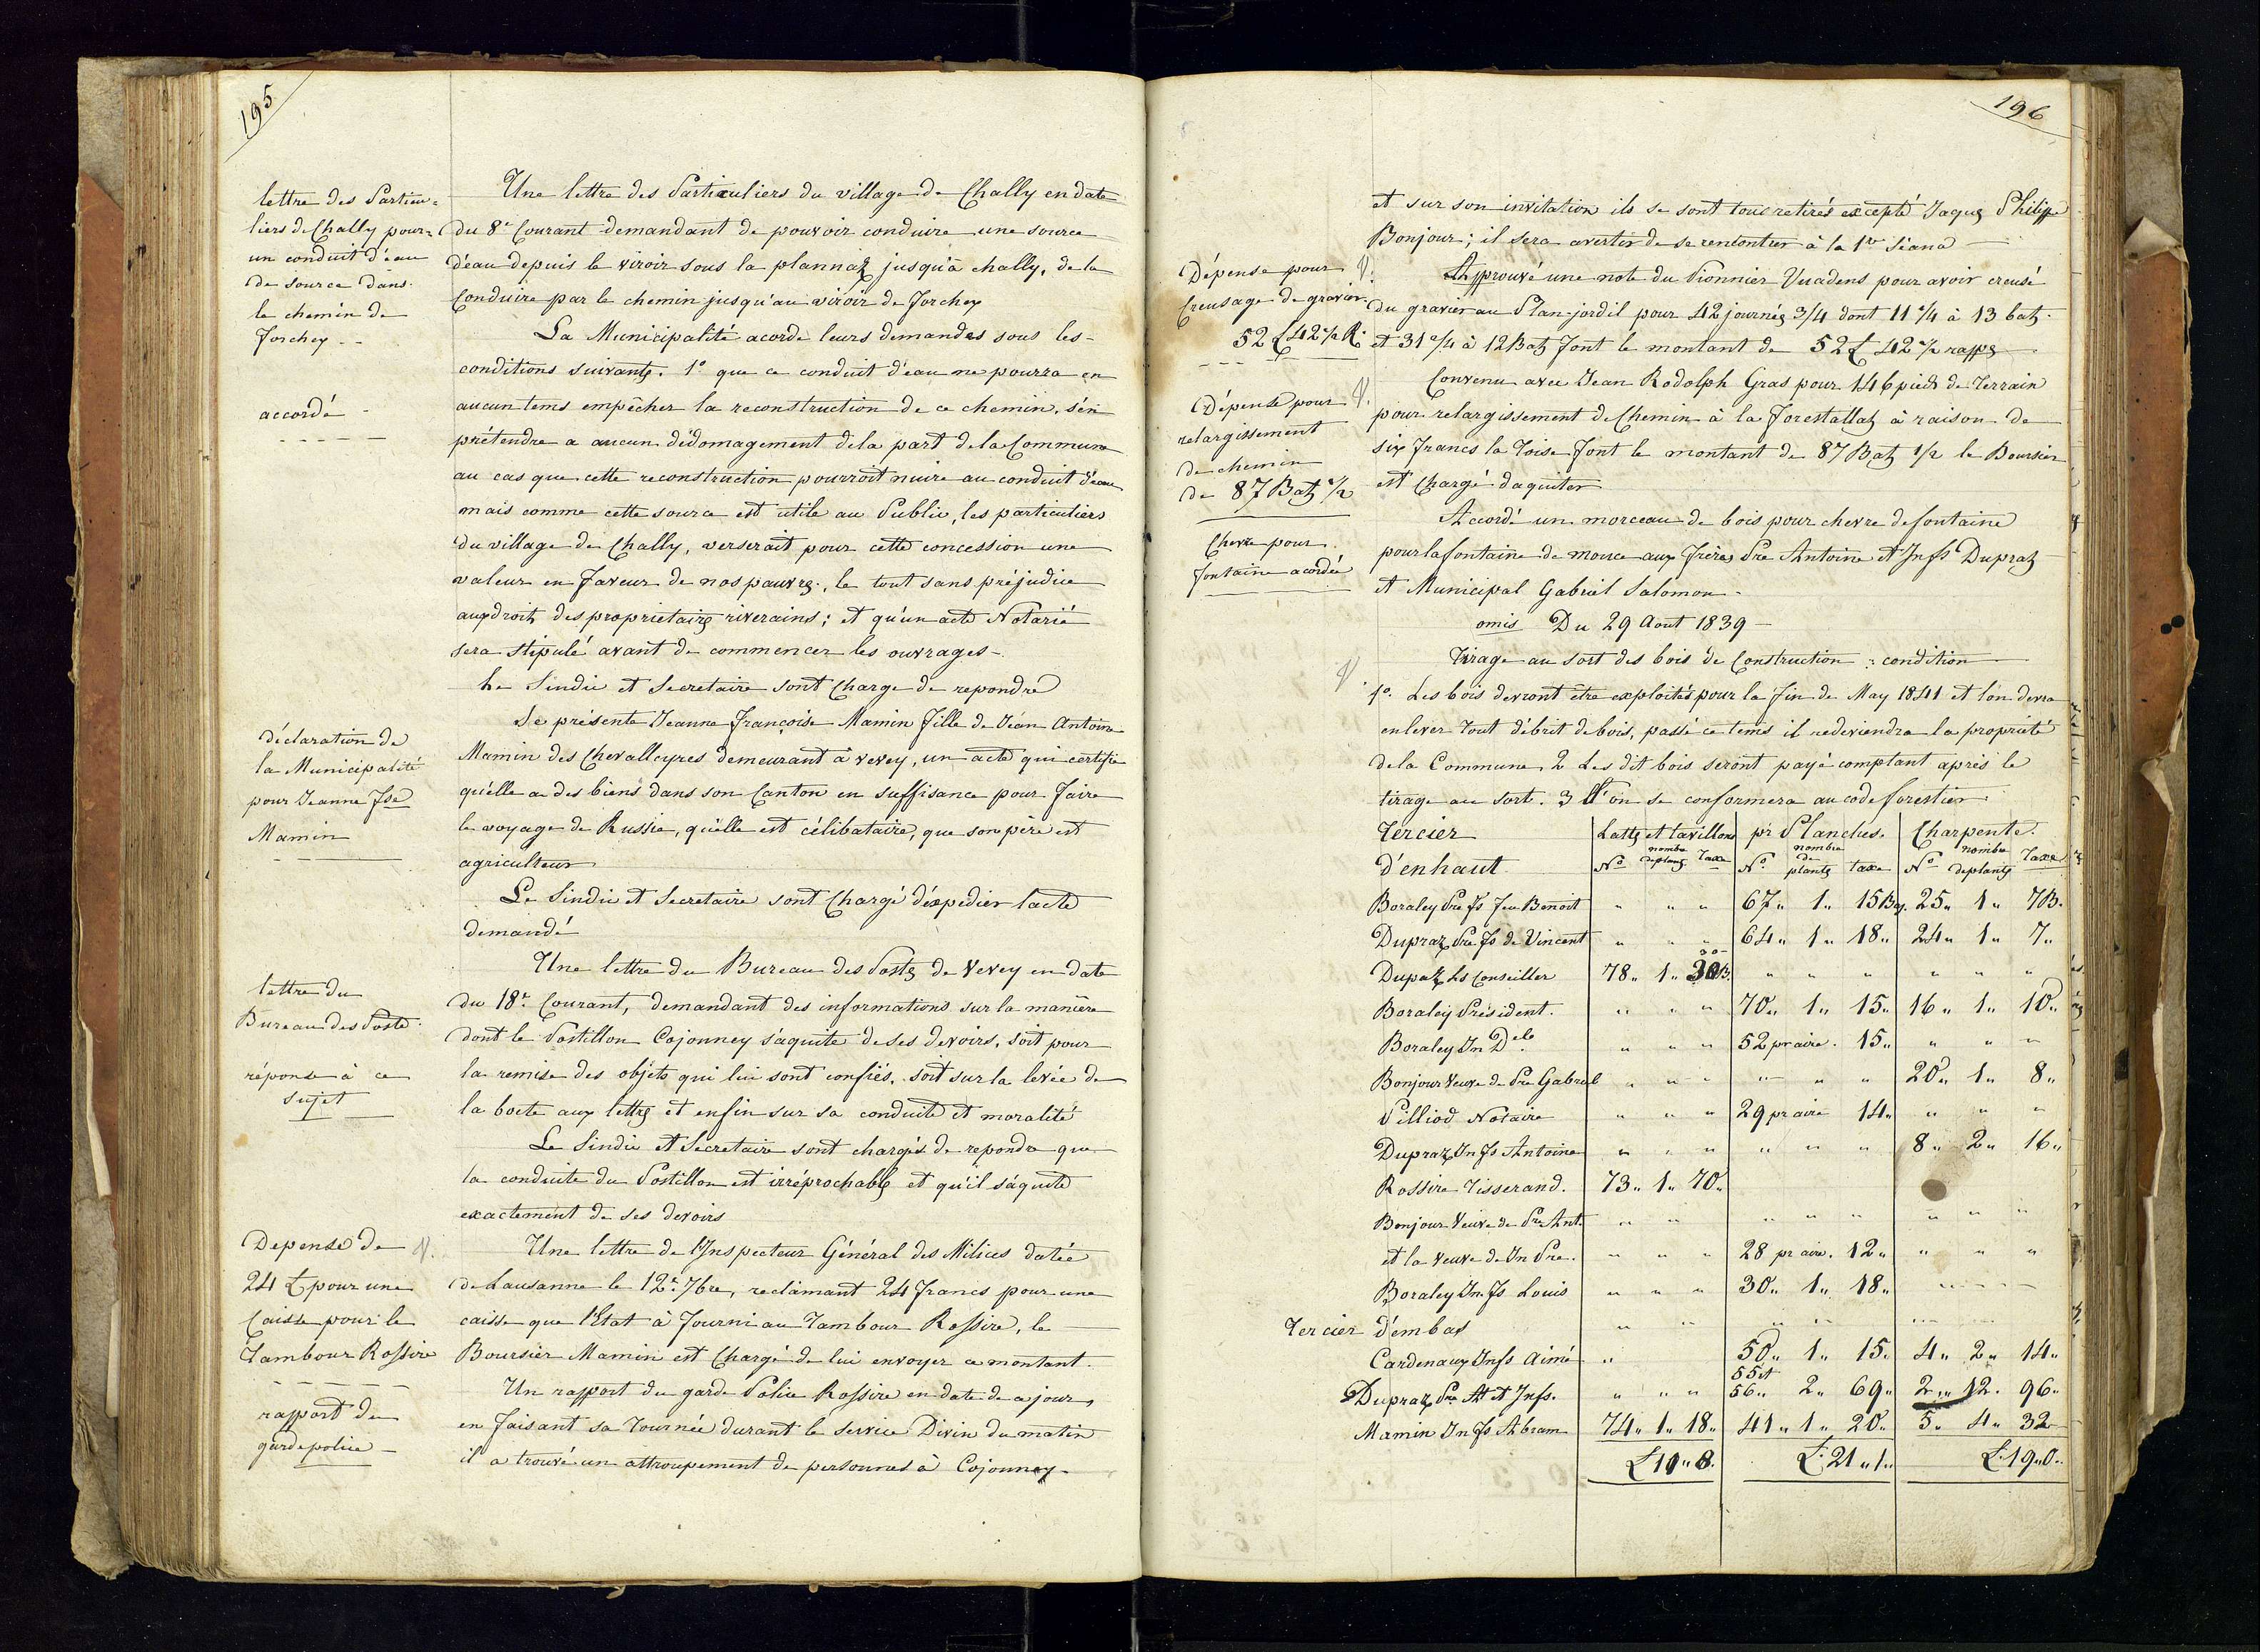 195
lettre des Particu=
liers de Chally pour
un conduit d'eau
de source dans
le chemin de
Forchey
accordé
Une lettre des Particuliers du village de Chally en date
du 8e Courant demandant de pouvoir conduire une source
d'eau depuis le viroir sous la plannaz jusqu'à chally, de la
Conduire par le chemin jusqu'au viroir de Forchey
La Municipalité acorde leurs demandes sous les
conditions suivantes. 1o que ce conduit d'eau ne pourra en
aucun tems empêcher la reconstruction de ce chemin, s'en
prétendre a aucun dédomagement de la part de la Commune
au cas que cette reconstruction pourroit nuire au conduit d'eau
mais comme cette source est utile au Public, les particuliers
du village de Chally, verserait pour cette concession une
valeur en faveur de nos pauvres, le tout sans préjudice
aux droits des proprietaires riverains; et qu'un acte Notarié
sera stipulé avant de commencer les ouvrages.
Le Sindic et Secretaire sont Charge de repondre
déclaration de
la Municipalité
pour Jeanne Fse
Mamin
Se présente Jeanne Françoise Mamin fille de Jean Antoine
Mamin des Chevalleyres demeurant à vevey, un acte qui certifie
qu'elle a des biens dans son Canton en suffisance pour faire
le voyage de Russie, qu'elle est célibataire, que son père est
agriculteur
Le Sindic et Secretaire sont Chargé d'éxpedier lacte
demandé
lettre du
Bureau des Poste
réponse à ce
sujet
Une lettre du Bureau des Postes de Vevey en date
du 18e Courant, demandant des informations sur la manière
dont le Postillon Cojonney s'aquite de ses devoirs, soit pour
la remise des objets qui lui sont confiés, soit sur la levée de
la boete aux lettres et enfin sur sa conduite et moralité
Le Sindic et Secretaire sont chargés de repondre que
la conduite du Postillon est irréprochable et qu'il s'aquite
exactement de ses devoirs
Depense de
24 L pour une
Caisse pour le
Tambour Rossire
Une lettre de l'Inspecteur Général des Milices datée
de Lausanne le 12e 7bre, reclamant 24 francs pour une
caisse que l'Etat à fourni au Tambour Rossire, le
Boursier Mamin est Chargé de lui envoyer ce montant.
rapport du
garde police
Un rapport du garde Police Rossire en date de ce jour,
en faisant sa tournée durant le service Divin du matin
il a trouvé un attroupement de personnes à Cojonney
196
et sur son invitation ils se sont tous retirés excepté Jaques Philippe
Bonjour; il sera avertir de se rencontrer à la 1re Séance
Dépense pour
Creusage de gravier
52 L 42 1/2 R.
Approuvé une note du Pionnier Vuadens pour avoir creusé
du gravier au Plan-jordil pour 42 journées 3/4 dont 11 1/4 à 13 batz.
et 31 2/4 à 12 Batz font le montant de 52 L 42 1/2 rapps
Dépense pour
relargissement
de chemin
de 87 Batz 1/2
Convenu avec Jean Rodolph Gras pour 146 pieds de Terrain
pour relargissement de Chemin à la Forestallaz à raison de
six francs la Toise font le montant de 87 Batz 1/2 le Boursier
est Chargé daquiter
Chevre pour
fontaine acordée
Accordé un morceau de bois pour chevre de fontaine
pour la fontaine de mouce aux frères Pre Antoine et Jn fs Dupraz
et Municipal Gabriel Salomon
omis Du 29 Aout 1839
Tirage au sort des bois de Construction : condition
1o. Les bois devront être exploités pour la fin de May 1841 et l'on devra
enlever tout débrit de bois, passé ce tems il redeviendra la propriété
de la Commune, 2 Les dit bois seront payé comptant après le
tirage au sort. 3 l'on se conformera au code forestier
Tercier | Lattes et tavillons | pr Planches. | Charpente.
d'enhaut | No nombre deplants Taxe | No nombre de plants taxe | No nombre deplants Taxe
Boraley Pre fs feu Benoit " " " 67 " 1 " 15 Bz. 25 " 1 " 7 B.
Dupraz Pre fs de Vincent " " " 64 " 1 " 18 " 24 " 1 " 7 "
Dupraz Ls Conseiller 78 " 1 " 30 B. " " " " " "
Boraley Président. " " " 70 " 1 " 15 " 16 " 1 " 10 "
Boraley Jn Dle " " " 52 pr aire. 15 " " " "
Bonjour Veuve de Pre Gabriel " " " " " " 20 " 1 " 8 "
Pilliod Notaire " " " 29 pr aire 14 " " " "
Dupraz Jn fs Antoine " " " " " " 8 " 2 " 16 "
Rossire Tisserand. 73 " 1 " 70 "
Bonjour Veuve de Pre Ant. " " " " " " " "
et la veuve de Jn Pre. " " " 28 pr aire. 12 " " " "
Boraley Jn fs Louis " " " 30 " 1 " 18 " " " "
Tercier d'embas " " " " " "
Cardenaux Jn fs Aimé " 50 " 1 " 15. 4 " 2 " 14 "
Dupraz Pre At et Jn fs. " " " 55 et 56 " 2 " 69 " 2 " 12. 96 "
Mamin Jn fs Abram 74 " 1 " 18 " 41 " 1 " 20 " 5 " 4 " 32
L 11 " 8. L. 21 " 1 " L. 19 " 0 "